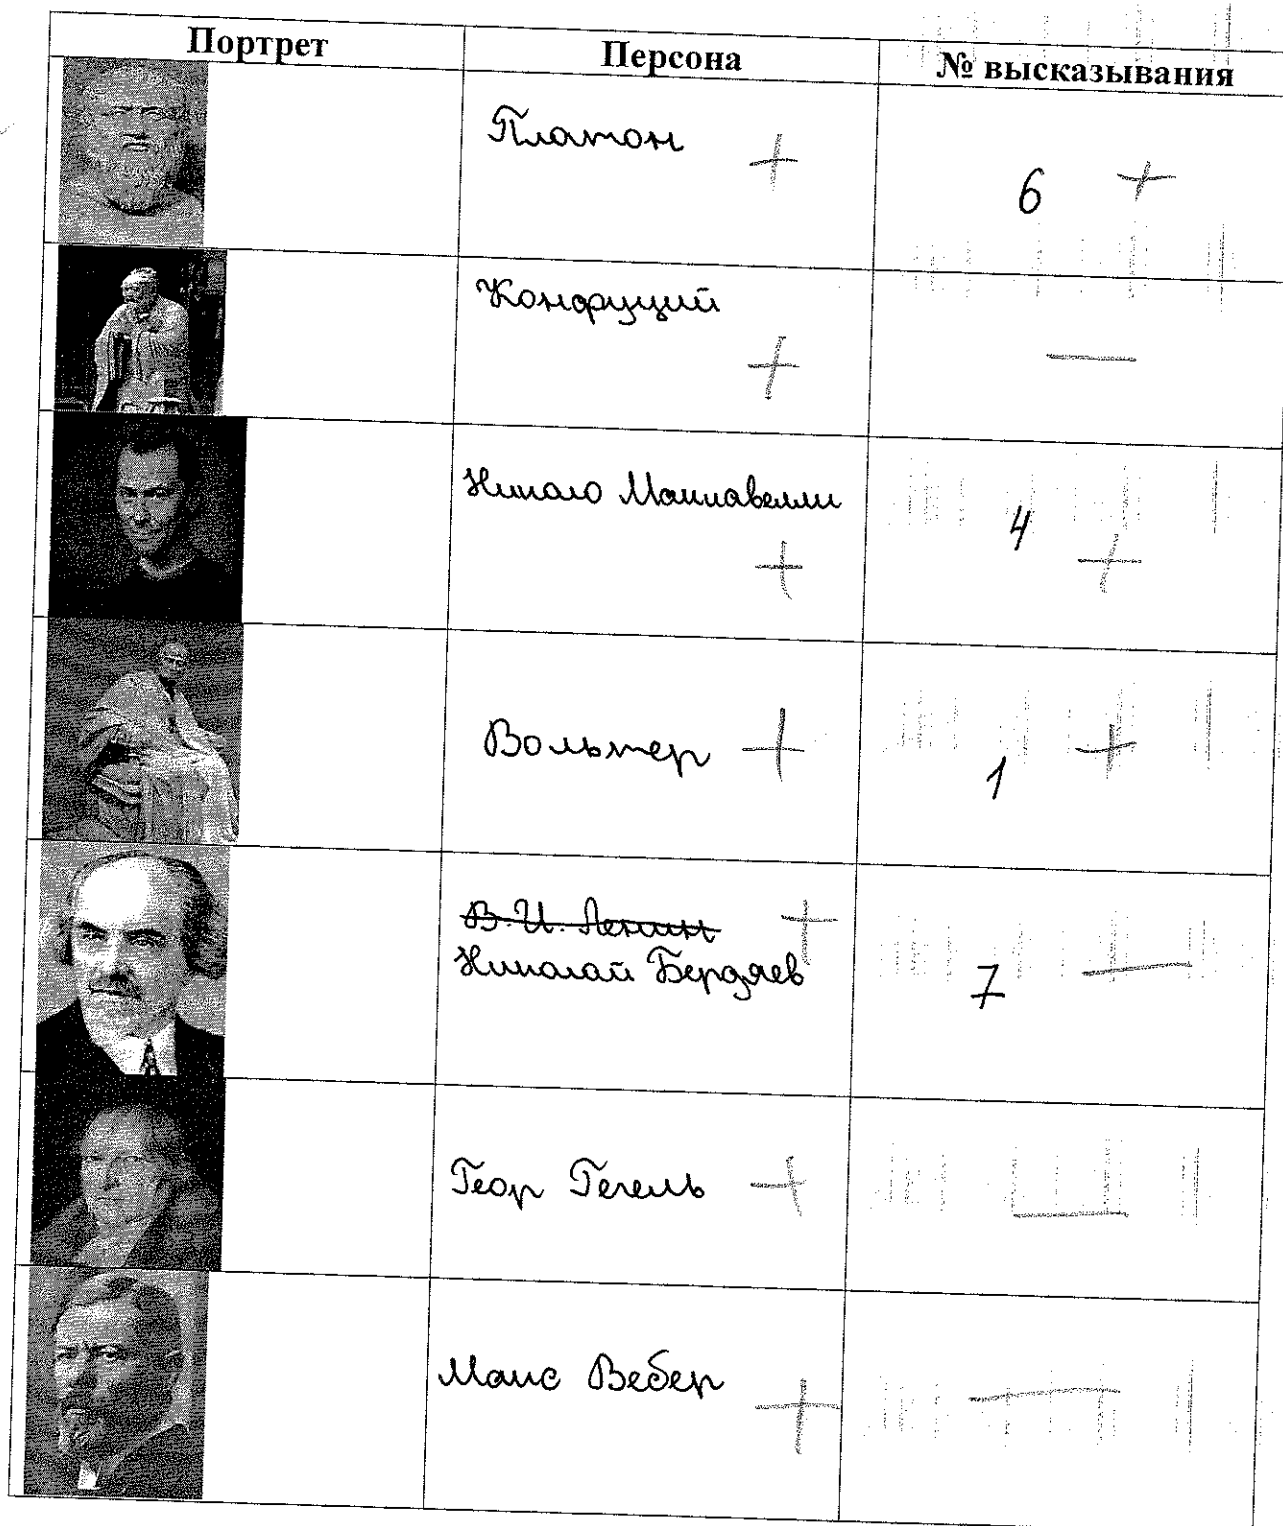 Портрет Персона № высказывания
Платон + 6 +
Конфуций + —
Никало Макиавелли + 4 +
Вольтер + 1 +
В.И. Ленин +
Николай Бердяев 7 —
Геор Гегель + —
Макс Вебер + —